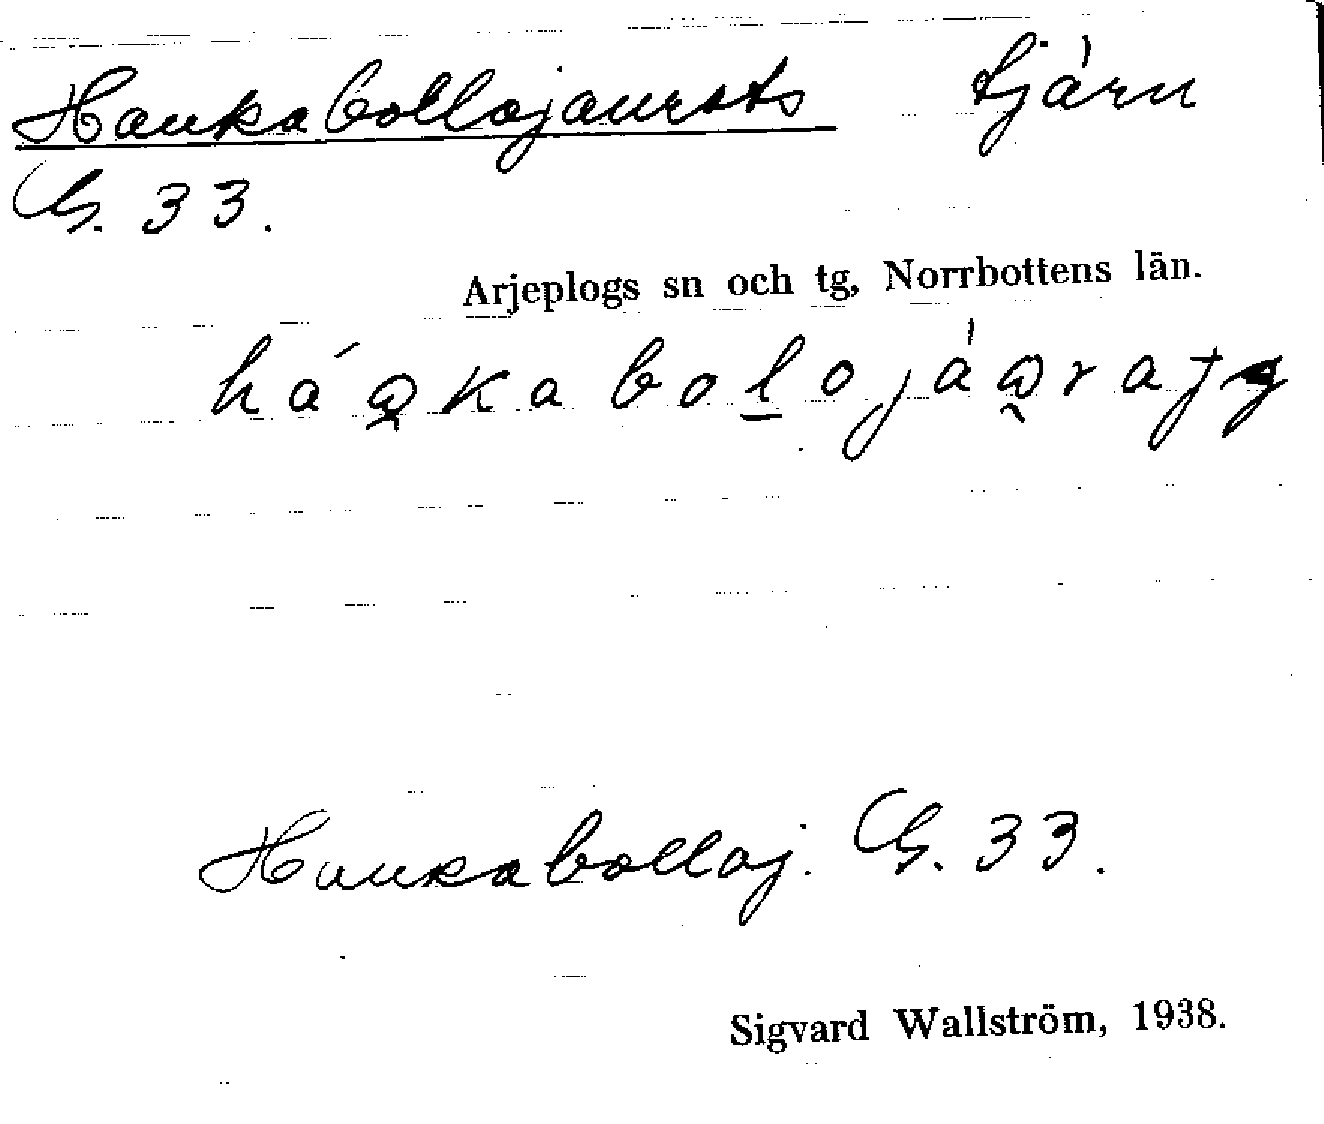 Haukabollojaurats tjärn
G. 33.
Arjeplogs sn och tg, Norrbottens län.
Haukabolloj. G. 33.
Sigvard Wallström, 1938.